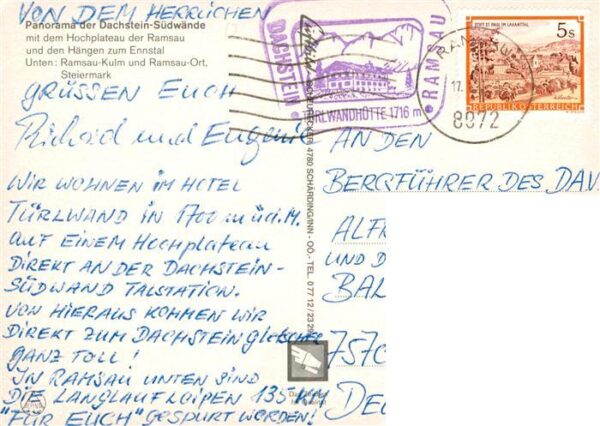 VON DEM HERRLICHEN
Panorama der Dachstein-Südwände
mit dem Hochplateau der Ramsau
und den Hängen zum Ennstal
Unten: Ramsau-Kulm und Ramsau-Ort,
Steiermark
GRÜSSEN EUCH
Richard und Eugenie
WIR WOHNEN IM HOTEL
TÜRLWAND IN 1700 m ü.d.M.
AUF EINEM Hochplateau
DIREKT AN DER DACHSTEIN-
SÜDWAND TALSTATION.
VON HIERAUS KOMMEN WIR
DIREKT ZUM DACHSTEINGletscher
GANZ TOLL!
IN RAMSAU UNTEN SIND
DIE LANGLAUFLOIPEN 135 KM
"FÜR EUCH" GESPURT WORDEN!
DACHSTEIN
RAMSAU
TÜRLWANDHÜTTE 1716 m
4780 SCHÄRDING/INN - OÖ. - TEL. 0 77 12 /
STIFT ST. PAUL IM LAVANTTAL
5 S
REPUBLIK ÖSTERREICH
17.
8972
AN DEN
BERGFÜHRER DES DAV
ALF
UND D
BAL
757
DE